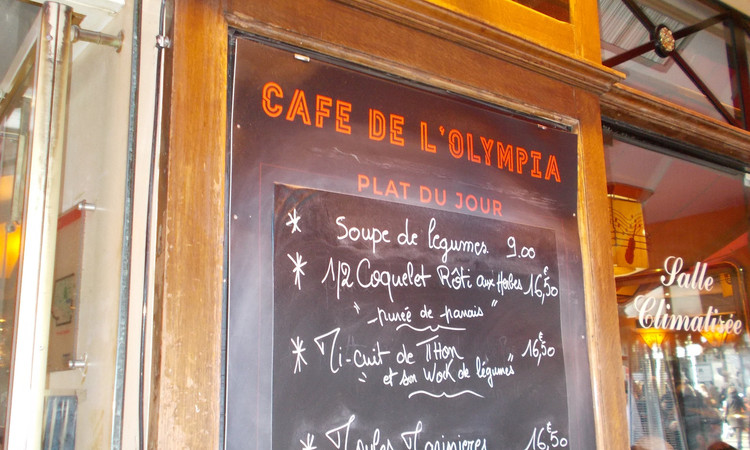 CAFE DE L'OLYMPIA
PLAT DU JOUR
* Soupe de légumes 9.00
* 1/2 Coquelet Rôti aux Herbes 16,50€
"purée de panais"
* Mi-cuit de THon 16,50€
"et son Wock de légumes"
* Moules Marinieres 16,50€
Salle
Climatisée